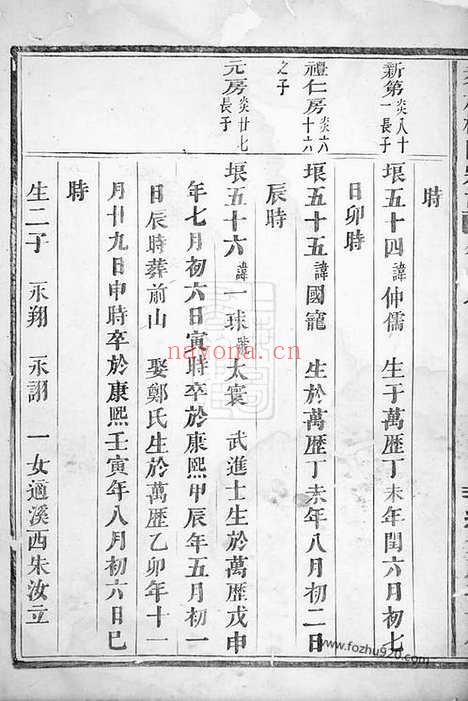 時
新第 炎八十一長子
垠五十四 諱仲儒 生于萬歷丁未年閏六月初七
日卯時
禮仁房 炎六十六之子
垠五十五 諱國寵 生於萬歷丁未年八月初二日
辰時
元房 炎廿七長子
垠五十六 諱一球 號太寰 武進士生於萬歷戊申
年七月初六日寅時卒於康熙甲辰年五月初一
日辰時葬前山 娶鄭氏生於萬歷乙卯年十一
月廿九日申時卒於康熙壬寅年八月初六日巳
時
生二子 永翔 永詡 一女適溪西朱汝立
nayona.cn
www.fozhu920.com